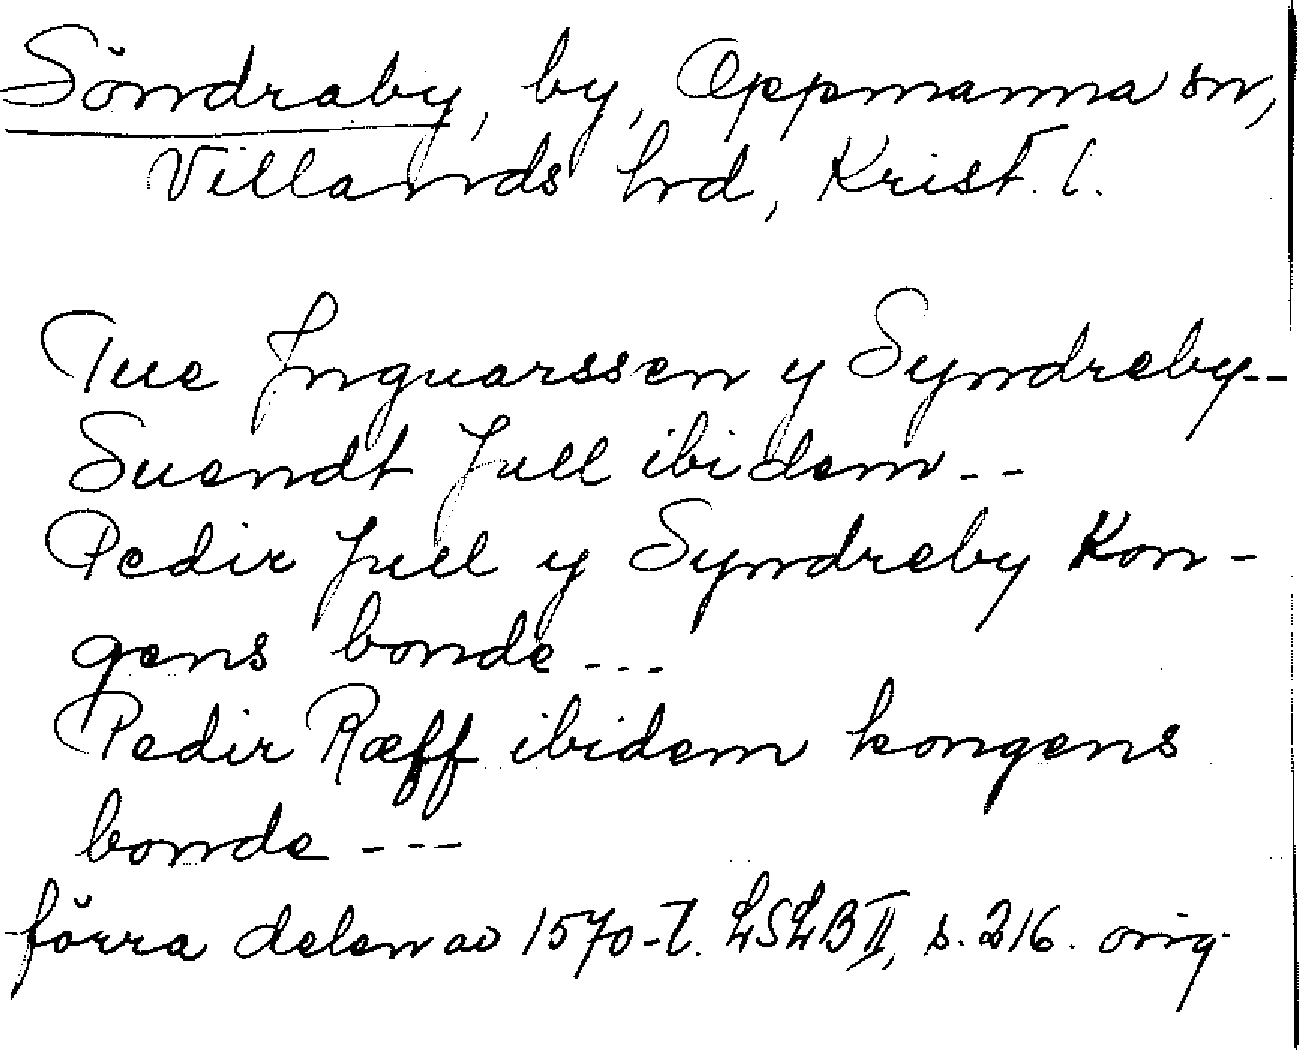 Söndraby, by, Oppmanna sn,
Villands hrd, Krist. l.
Tue Inguarssen y Syndreby--
Suendt Jull ibidem--
Pedir Juel y Syndreby Kon-
gens bonde---
Pedir Ræff ibidem kongens
bonde---
förra delen av 1570-t. LSLB II, s. 216. orig.